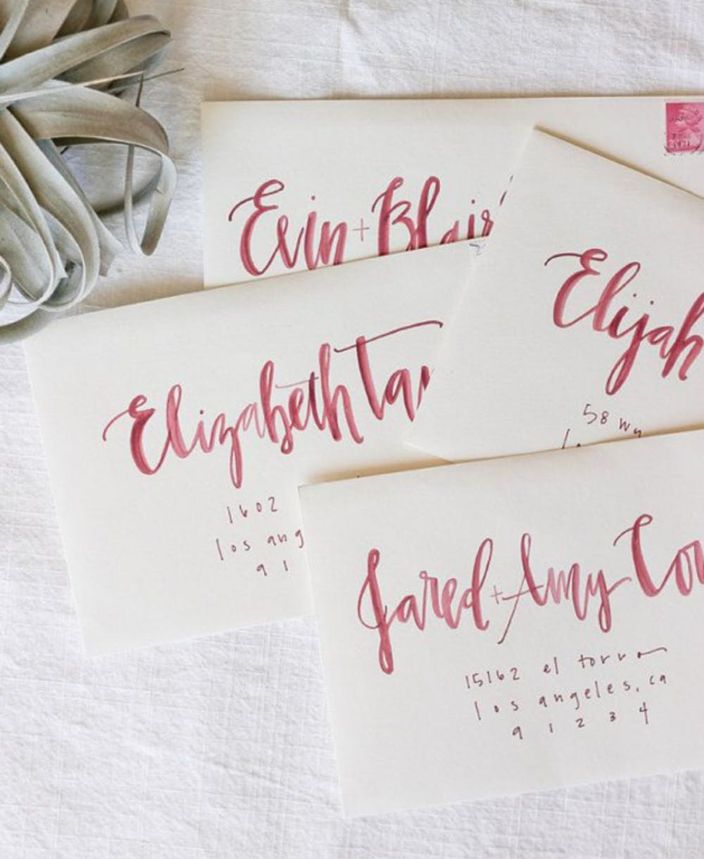 Evin + Blair
Elijah
58
Elizabeth
1602
los ang
9 1
Jared + Amy
15162 el torro
los angeles, ca
9 1 2 3 4